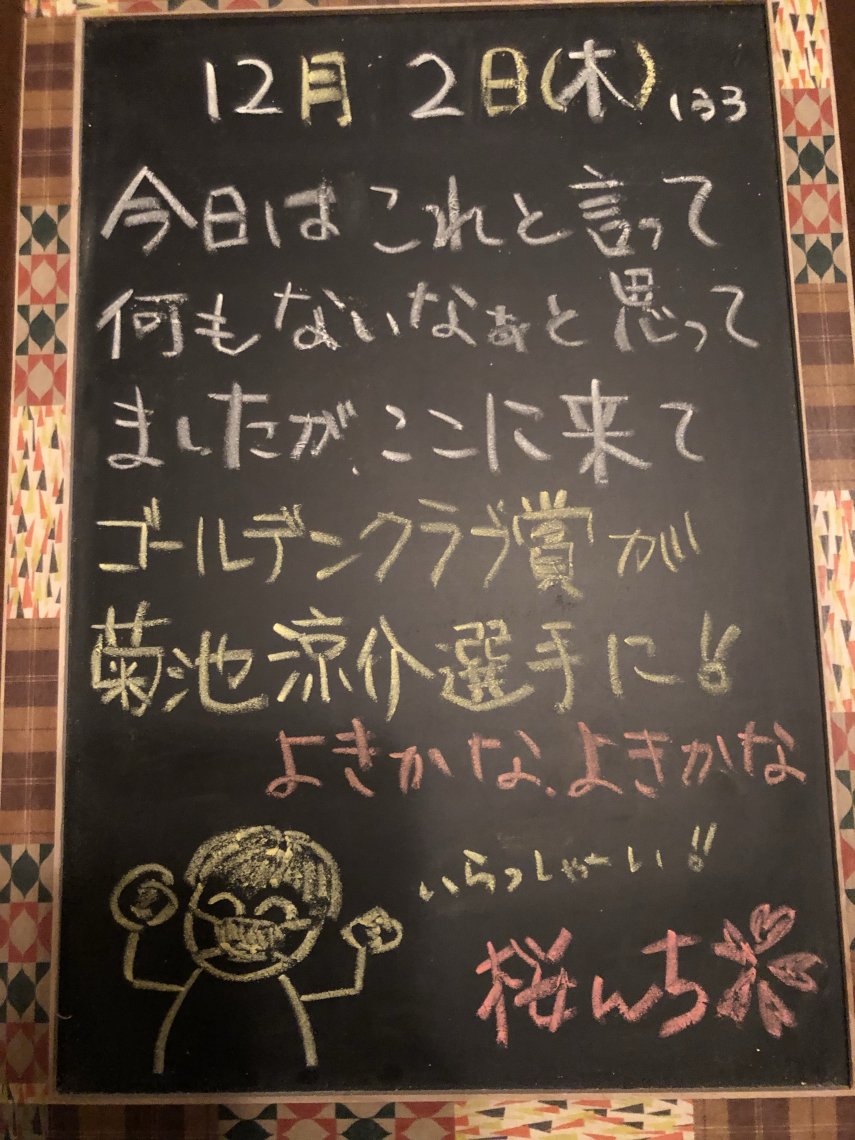 12月 2日(木) 133
今日はこれと言って
何もないなぁと思って
ましたが、ここに来て
ゴールデンクラブ賞が
菊池涼介選手に!!
よきかな、よきかな
いらっしゃーい!!
桜んち